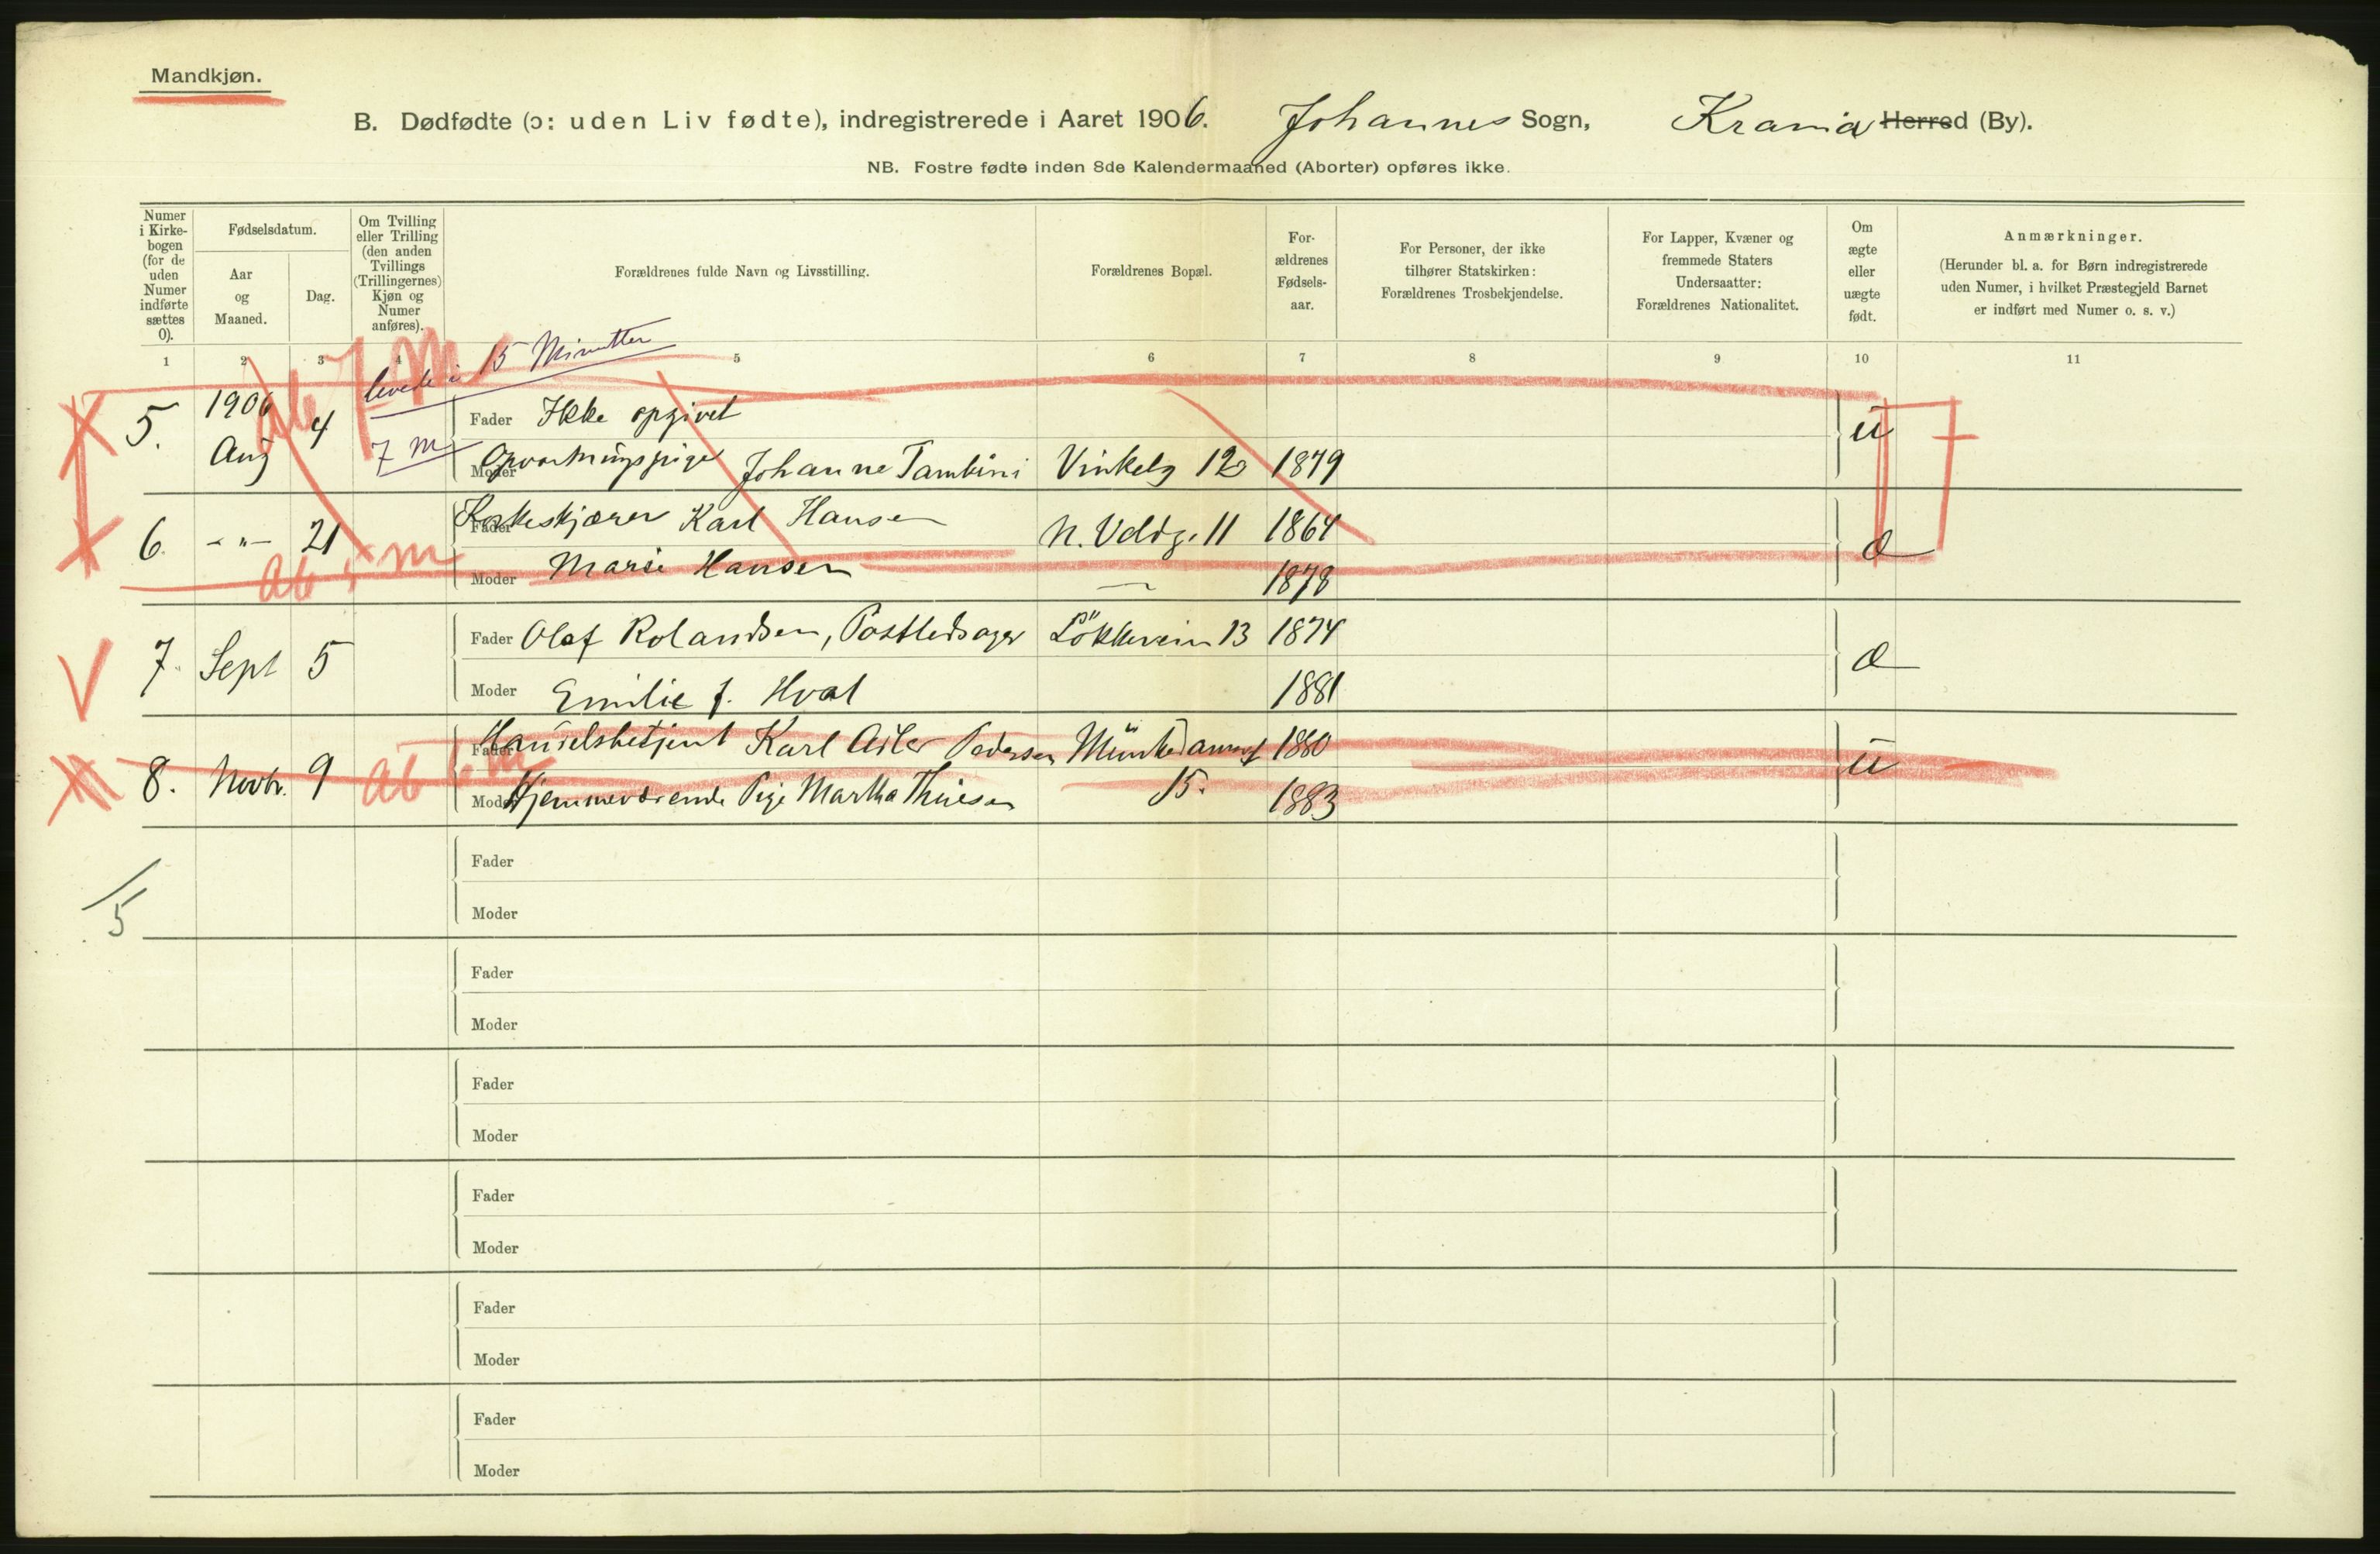 Mandkjøn.
B. Dødfødte (ɔ: uden Liv fødte), indregistrerede i Aaret 1906. Johannes Sogn, Krania Herred (By).
NB. Fostre fødte inden 8de Kalendermaaned (Aborter) opføres ikke.
Numer i Kirke-bogen (for de uden Numer indførte sættes 0).
Fødselsdatum.
Aar og Maaned.
Dag.
Om Tvilling eller Trilling (den anden Tvillings (Trillingernes) Kjøn og Numer anføres).
Forældrenes fulde Navn og Livsstilling.
Forældrenes Bopæl.
For-ældrenes Fødsels-aar.
For Personer, der ikke tilhører Statskirken: Forældrenes Trosbekjendelse.
For Lapper, Kvæner og fremmede Staters Undersaatter: Forældrenes Nationalitet.
Om ægte eller uægte født.
Anmærkninger.
(Herunder bl. a. for Børn indregistrerede uden Numer, i hvilket Præstegjeld Barnet er indført med Numer o. s. v.)
1 2 3 4 5 6 7 8 9 10 11
Ab 7 m
levede i 15 Minutter
5. 1906 Aug 4 7 m
Fader Ikke opgivet ü
Moder Opvartningspige Johanne Tambini Vinkelg 12 1879
6. - " - 21
Fader Korkeskjærer Karl Hansen N. Voldg. 11 1864 Æ
Ab m
Moder Marie Hansen — 1878
7. Sept 5
Fader Olaf Rolandsen, Postledsager Lökkevein 13 1874 Æ
Moder Emilie f. Hval 1881
8. Novbr. 9 Ab m
Fader Handelsbetjent Karl Adler Pedersen Munkedamsv 1880 ü
Moder Hjemmeværende Pige Martha Thiesen 15. 1883
5
Fader
Moder
Fader
Moder
Fader
Moder
Fader
Moder
Fader
Moder
Fader
Moder